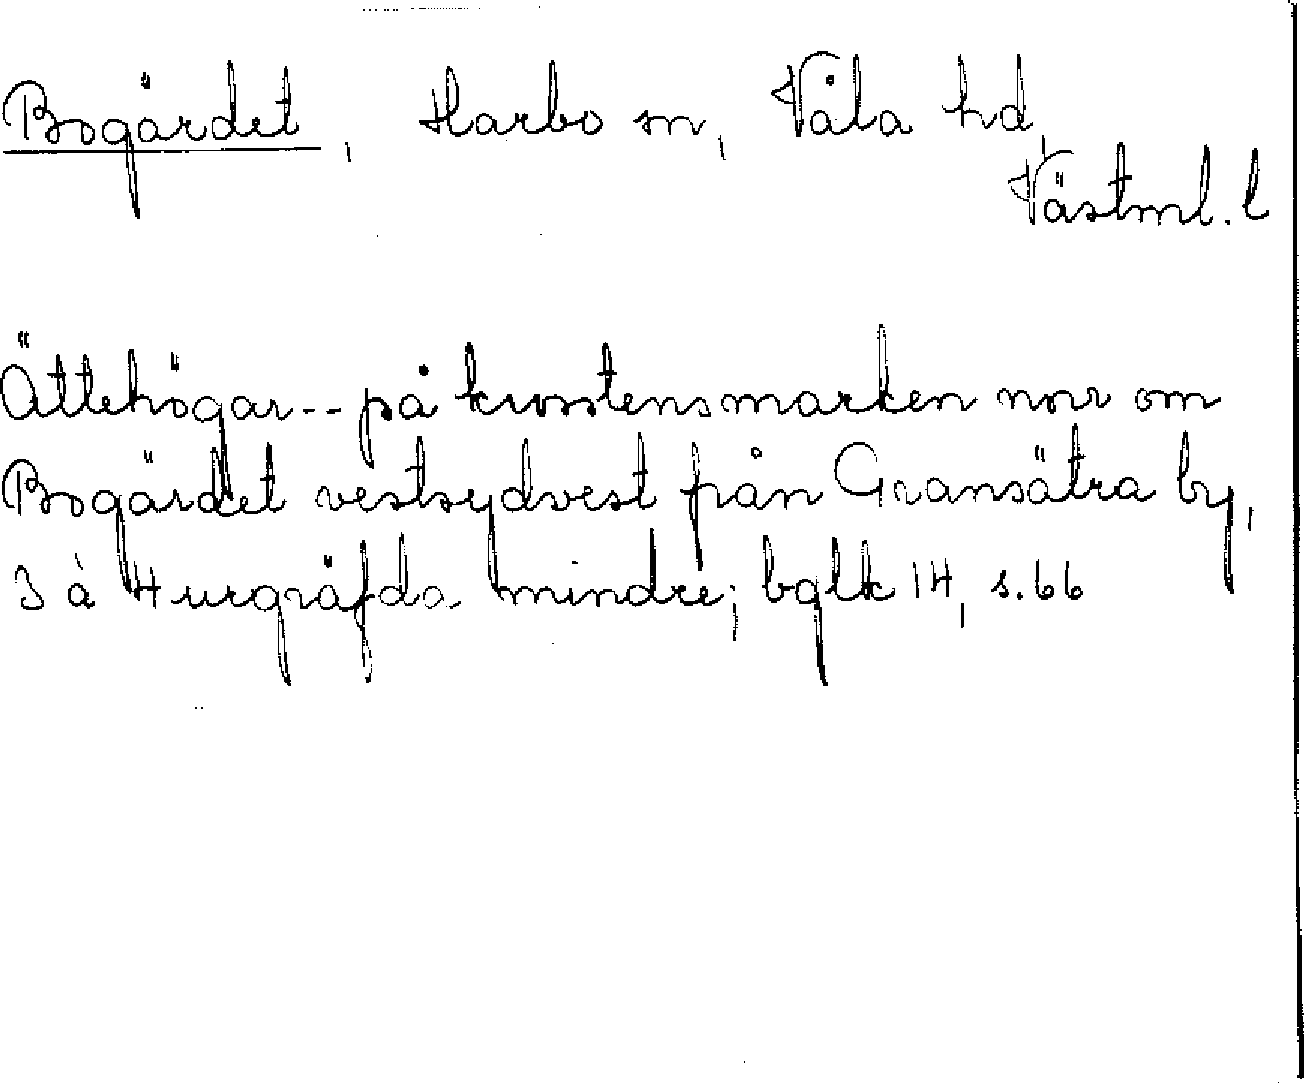 Bogärdet, Harbo sn, Våla hd,
Västml. l
Ättehögar -- på krosstensmarken norr om
Bogärdet vestsydvest från Gransätra by,
3 à 4 urgräfda mindre; bglk 14, s. 66